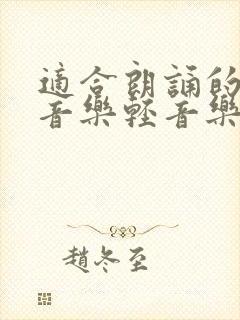 適合朗誦的
音樂輕音樂
趙冬至